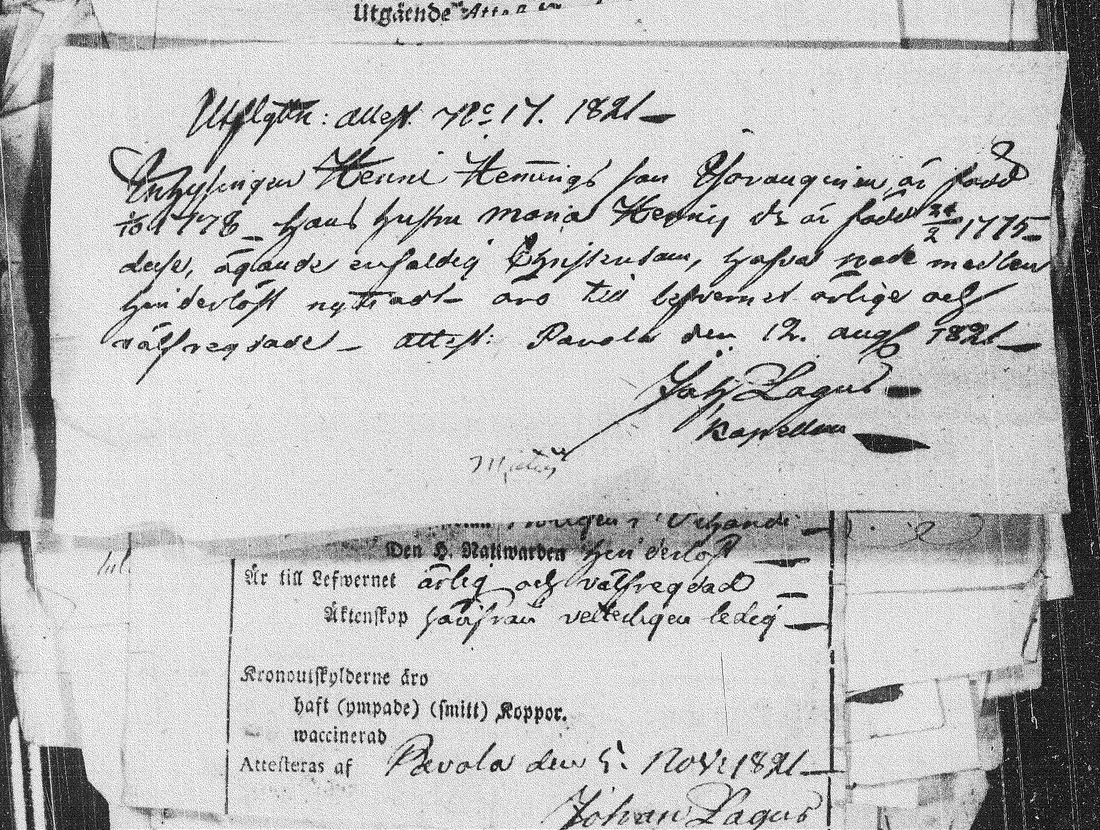 Utgående Att
Utflytn: attest. No 17. 1821
Inhysingen Henric Hemmings son är född
1778 hans hustru Maria är född 24/2 1775
dese, ägande enfaldig Christendom, hafva med len
hinderlöst nyttiadt äro till lefvernet ärlige och
välfregdade attest: Pavola den 12. aug 1821
Joh Lagus
Kapellan
Den H. Nattwarden hinderlöst
Är till Lefwernet ärlig och välfregdad
Äktenskap härifrån veterligen ledig
Kronoutskylderne äro
haft (ympade) (smitt) Koppor.
waccinerad
Attesteras af Pavola den 5. Nov: 1821
Johan Lagus